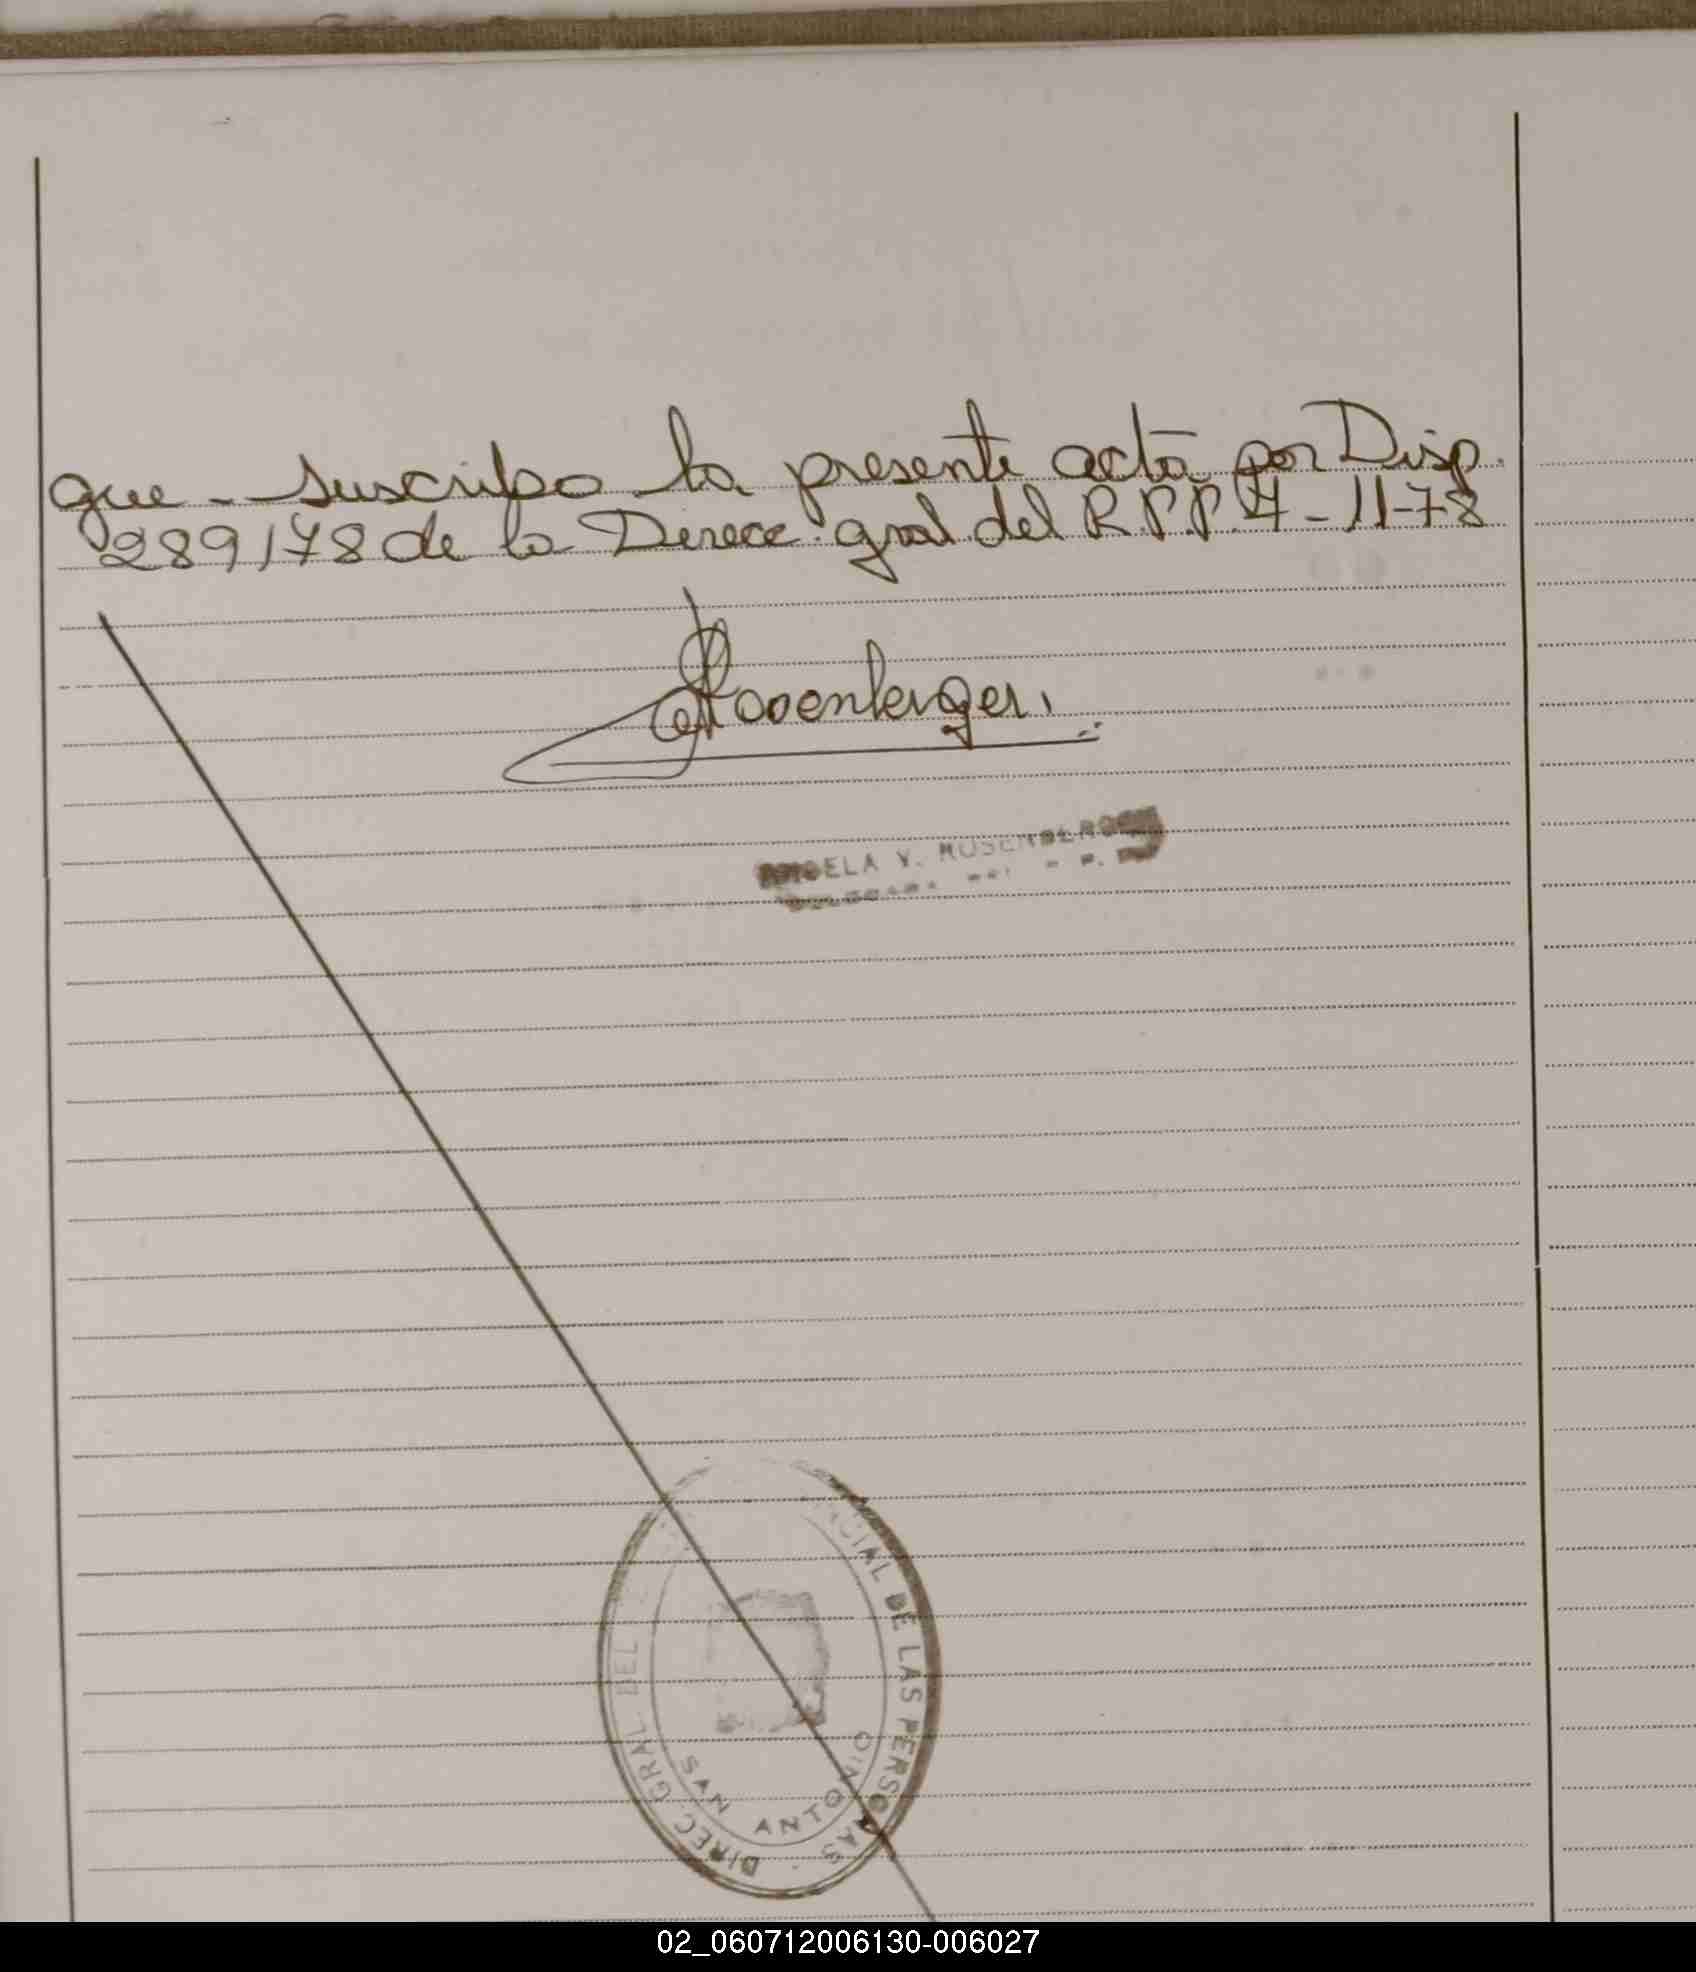 que - suscribo la presente acta por Disp.
289/78 de la Direcc. gral del R.P.P. 7-11-78
Rosenberger.
ANGELA V. ROSENBERGER
DIREC. GRAL. DEL
CIAL DE LAS PERSONAS
SAN ANTONIO
02_060712006130-006027